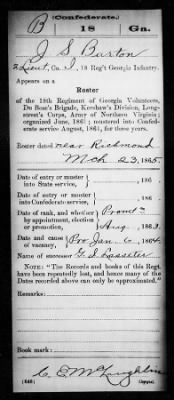 (Confederate.)
B 18 Ga.
J S Barton
2 Lieut, Co. I, 18 Reg't Georgia Infantry.
Appears on a
Roster
of the 18th Regiment of Georgia Volunteers,
Du Bose's Brigade, Kershaw's Division, Long-
street's Corps, Army of Northern Virginia;
organized June, 1861; mustered into Confed-
erate service August, 1861, for three years.
Roster dated near Richmond
Mch 23, 1865.
Date of entry or muster
into State service, , 186 .
Date of entry or muster
into Confederate service, , 186 .
Date of rank, and whether
by appointment, election
or promotion,
Promt
Aug , 1863.
Date and cause
of vacancy,
Pro Jan 6, 1864.
Name of successor G. S. Lasseter
NOTE: "The Records and books of this Regt.
have been repeatedly lost, and hence many of the
Dates recorded above can only be approximated."
Remarks:
Book mark:
C. E. McLoughlin
(646) Copyist.